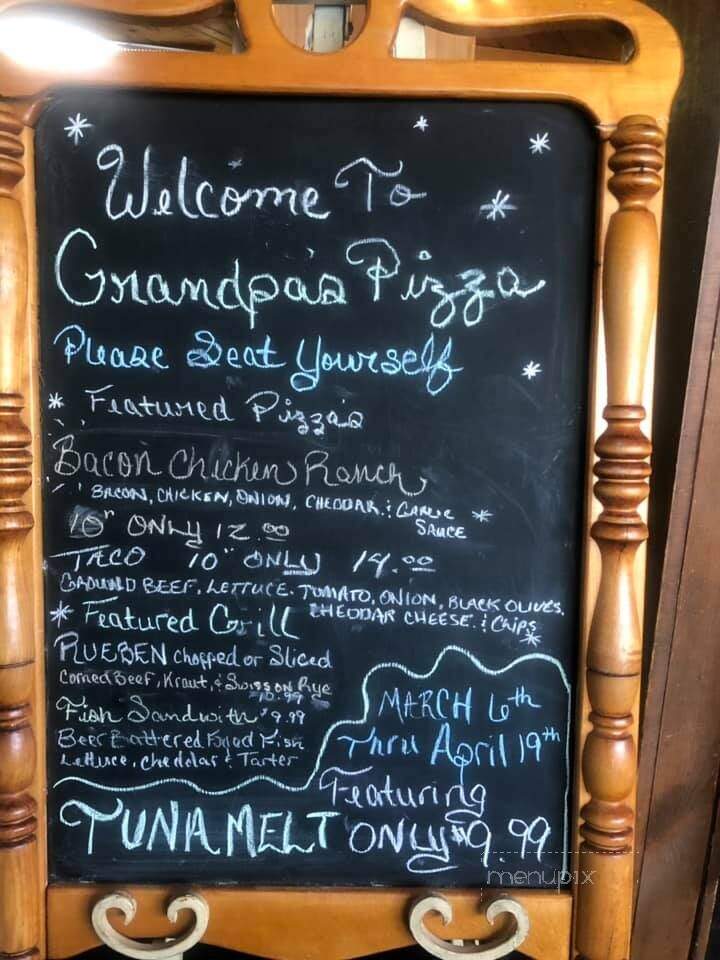 Welcome To
Grandpa's Pizza
Please Seat Yourself
* Featured Pizza's
Bacon Chicken Ranch
BACON, CHICKEN, ONION, CHEDDAR & GARLIC
SAUCE
10" ONLY 12.00
TACO 10" ONLY 14.00
GROUND BEEF, LETTUCE. TOMATO, ONION, BLACK OLIVES,
CHEDDAR CHEESE & Chips
* Featured Grill
RUEBEN Chopped or Sliced
Corned Beef, Kraut, & Swiss on Rye
10.99
Fish Sandwith $9.99
Beer Battered Fish
Lettuce, Cheddar & Tarter
MARCH 6th
Thru April 19th
Featuring
TUNA MELT ONLY $9.99
menupix